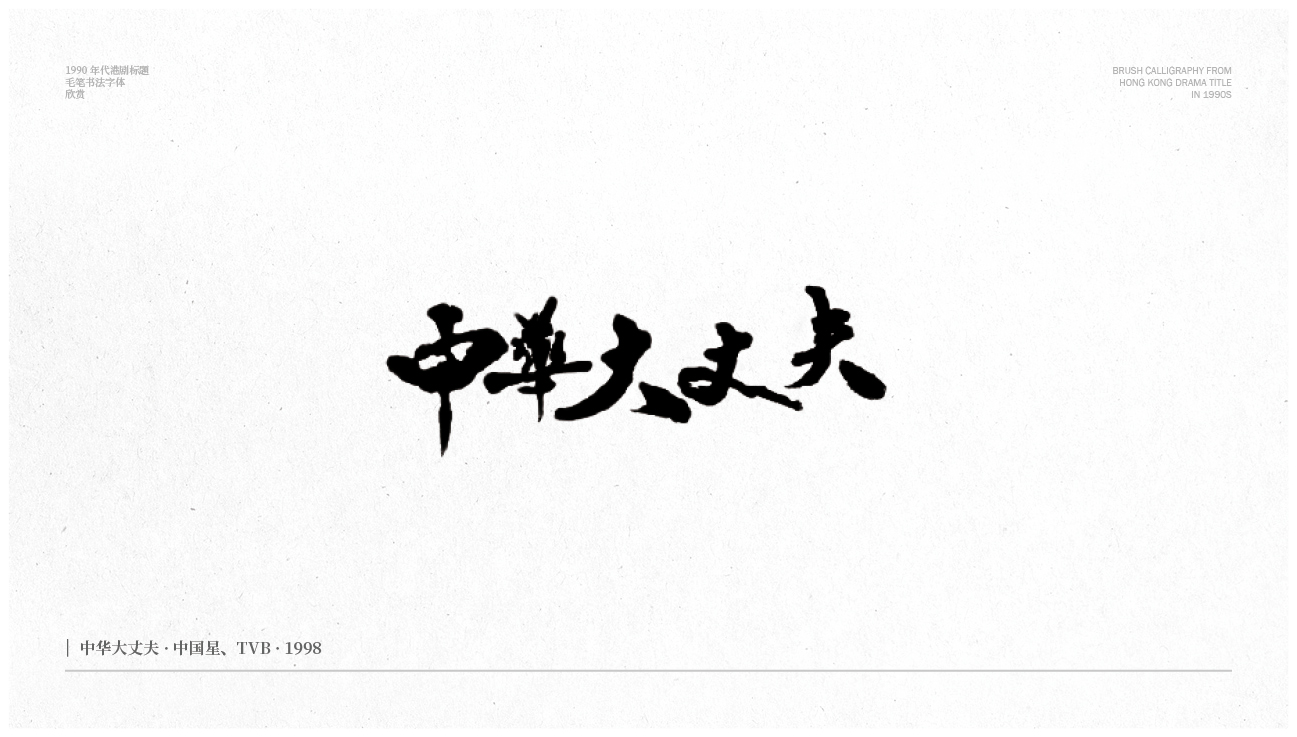 1990 年代港剧标题
毛笔书法字体
欣赏
BRUSH CALLIGRAPHY FROM
HONG KONG DRAMA TITLE
IN 1990S
中華大丈夫
中华大丈夫 · 中国星、TVB · 1998